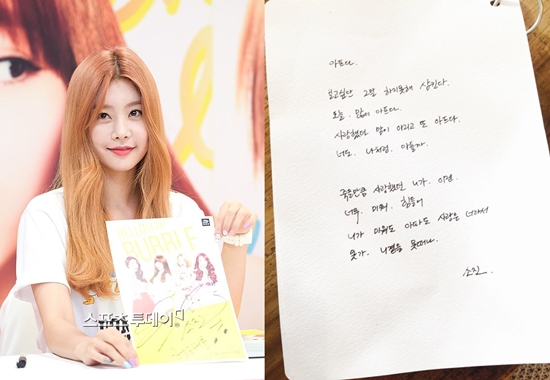 HELLO BUBBLE
스포츠투데이
아프다.
보고싶단 그말 하지못해 삼킨다.
오늘. 많이 아프다.
사랑했던 맘이 아리고 또 아프다.
너도. 나처럼. 아플까.
죽을만큼 사랑했던 니가. 이젠.
너무. 미워. 힘들어
니가 미워도 아파도 사랑은 너라서
못가. 니곁을 못떠나.
소진.